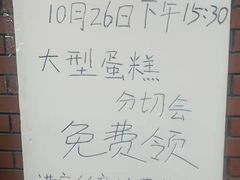 10月26日下午15:30
大型蛋糕
分切会
免费领